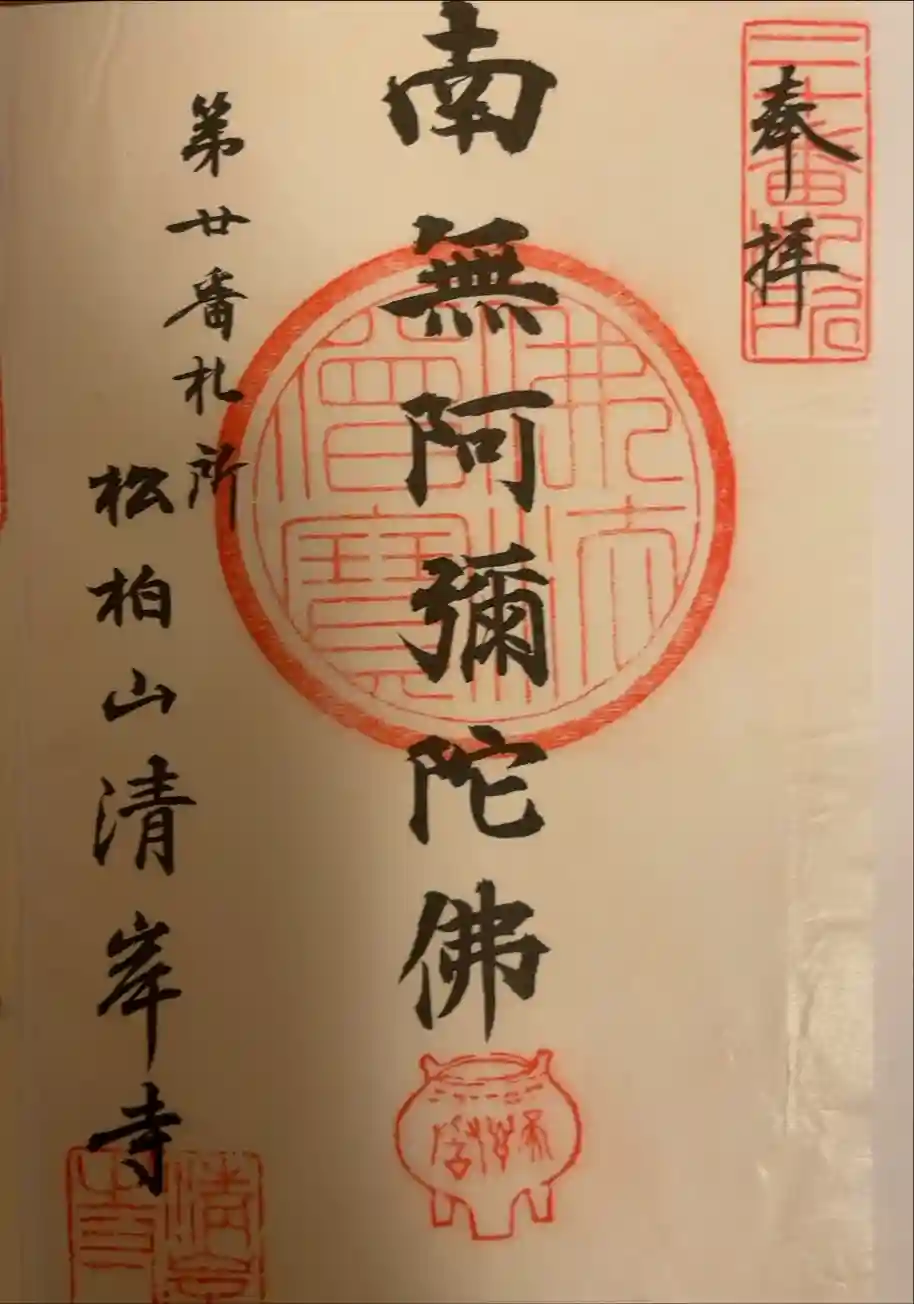 奉拝
二十番札所
南無阿彌陀佛
佛法僧寶
第廿番札所
松柏山清岸寺